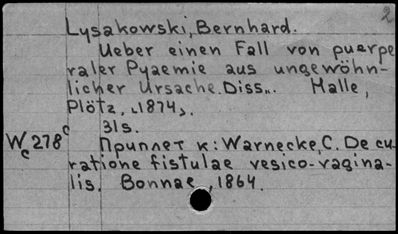 2
Lysakowski, Bernhard.
Ueber einen Fall von puerpe
raler Pyaemie aus ungewöhn-
licher Ursache. Diss,,. Halle,
Plötz, <1874>.
31s.
Wc 278c Приплет к: Warnecke, C. De cu-
ratione fistulae vesico-vagina-
lis. Bonnae, 1864.